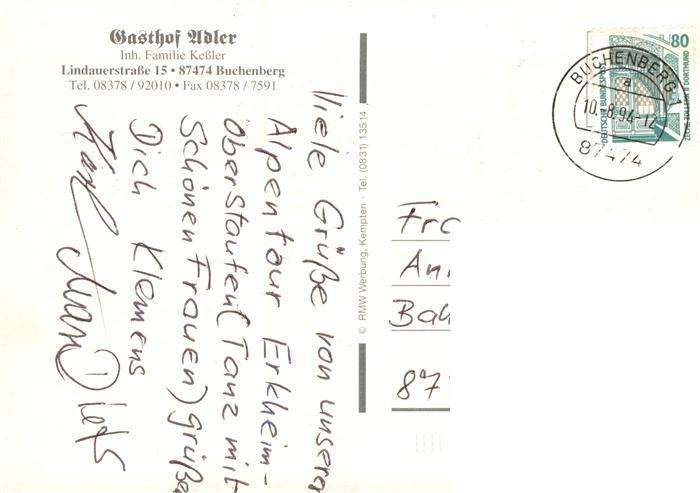 Gasthof Adler
Inh. Familie Keßler
Lindauerstraße 15 • 87474 Buchenberg
Tel. 08378 / 92010 • Fax 08378 / 7591
Viele Grüße von unserer
Alpentour Erkheim-
Oberstaufen (Tanz mit
Schönen Frauen) grüße
Dich Klemens
Karl
© RMW Werbung, Kempten · Tel. (0831) 13514
80
DEUTSCHE BUNDESPOST
BUCHENBERG 1
a
10.-8.94-12
87474
Fra
An
Bah
87